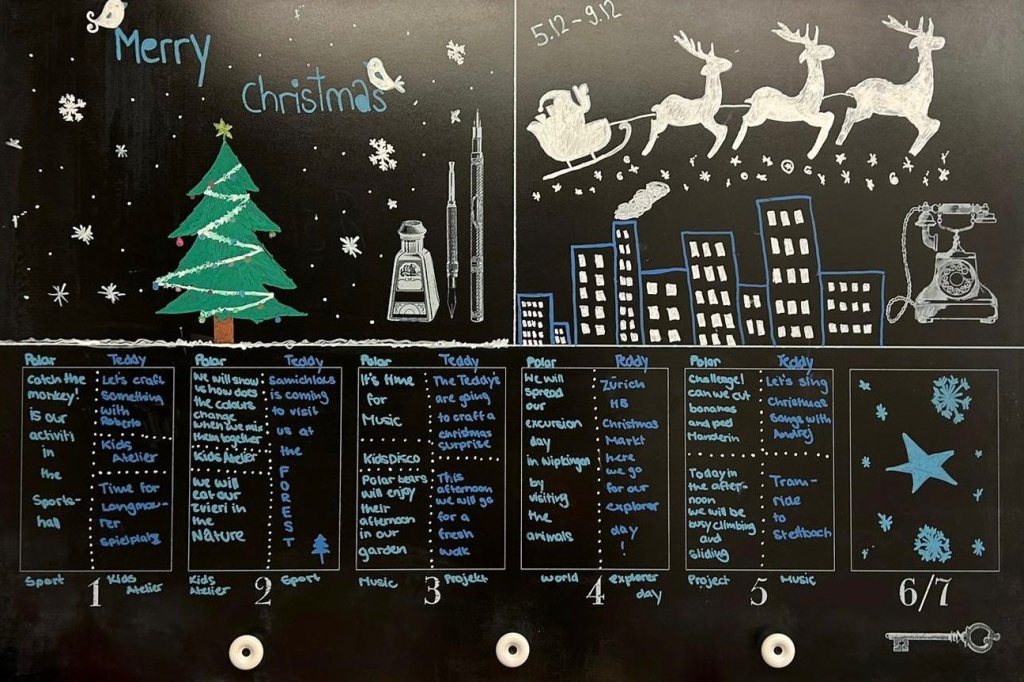 Merry
Christmas
5.12 – 9.12
Polar
Catch the
monkey!
is our
activiti
in
the
Sports-
hall
Sport
Teddy
Let's craft
something
with
Roberto
Kids
Atelier
Time for
Langmau-
rer
spielplatz
Kids
Atelier
1
Polar
We will show
us how does
the colours
change
when we mix
them together
Kids Atelier
We will
eat our
zvieri in
the
Nature
Kids
Atelier
Teddy
Samichlaus
is coming
to visit
us at
the
F
O
R
E
S
T
Sport
2
Polar
It's time
for
Music
KidsDisco
Polar bears
will enjoy
their
afternoon
in our
garden
Music
Teddy
The Teddy's
are going
to craft a
christmas
surprise
This
afternoon
we will go
for a
fresh
walk
Projekt
3
Polar
We will
spread
our
excursion
day
in Wipkingen
by
visiting
the
animals
World
Teddy
Zürich
HB
Christmas
Markt
here
we go
for our
explorer
day
!
explorer
day
4
Polar
Challenge!
can we cut
bananas
and peel
Manderin
Today in
the after-
noon
we will be
busy climbing
and
sliding
Project
Teddy
Let's sing
Christmas
Songs with
Andrej
Tram-
ride
to
Stettbach
Music
5
6/7